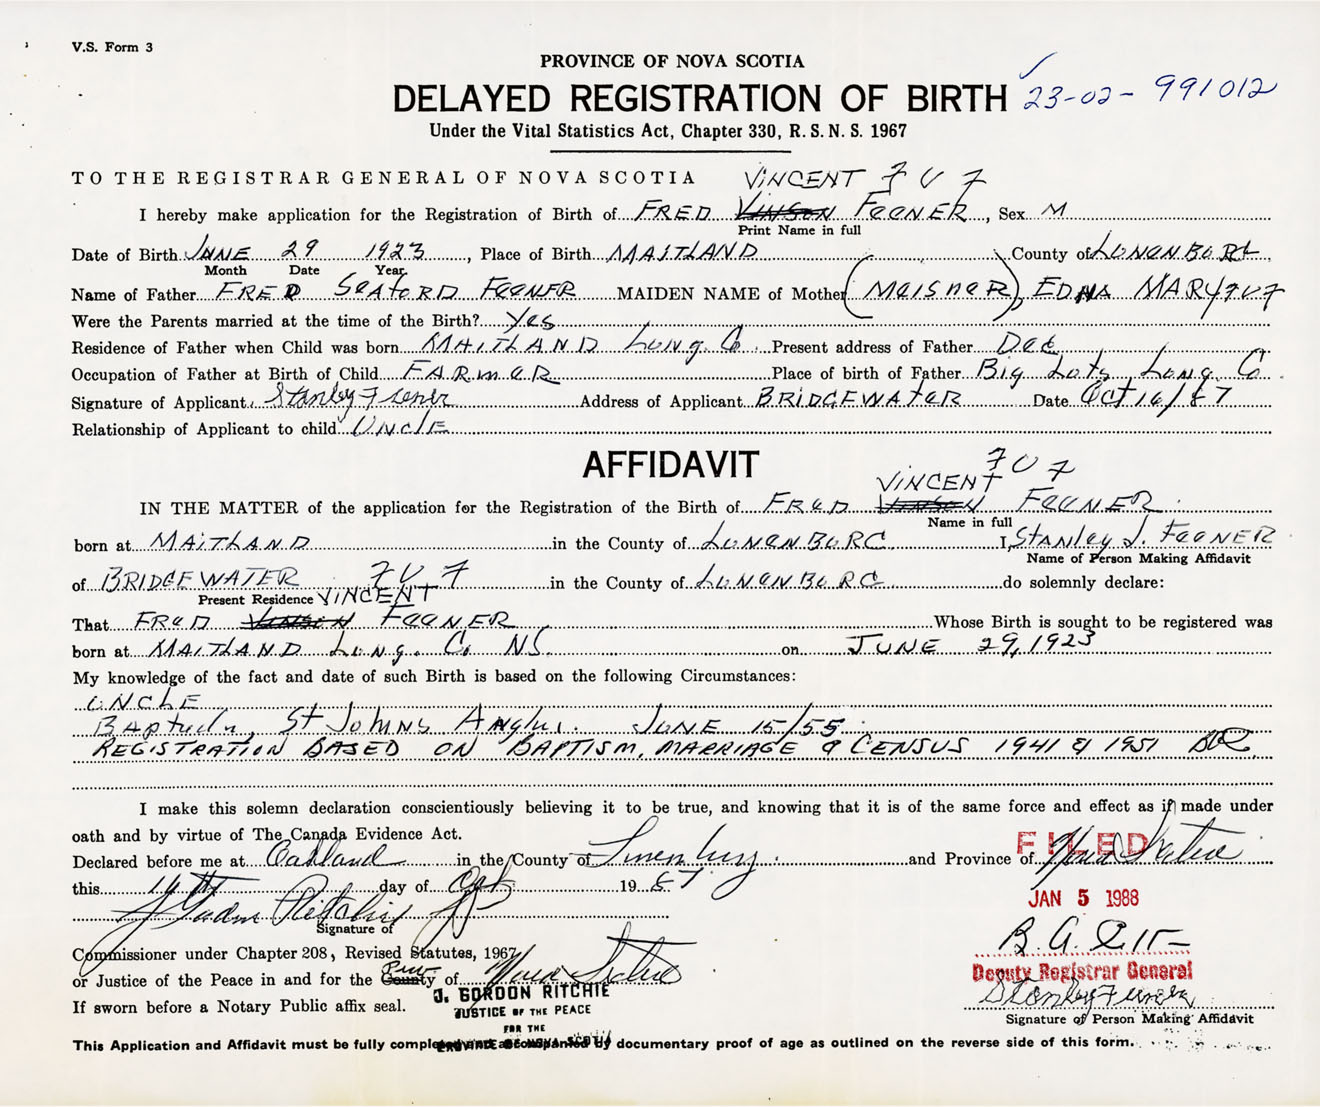 V.S. Form 3
PROVINCE OF NOVA SCOTIA
DELAYED REGISTRATION OF BIRTH 23-02-991012
Under the Vital Statistics Act, Chapter 330, R. S. N. S. 1967
TO THE REGISTRAR GENERAL OF NOVA SCOTIA VINCENT
I hereby make application for the Registration of Birth of FRED VINSON FEENER, Sex M
Print Name in full
Date of Birth JUNE 29 1923, Place of Birth MAITLAND County of LUNENBURG,
Month Date Year
Name of Father FRED SEAFORD FEENER MAIDEN NAME of Mother (MeisneR), EDNA MARY
Were the Parents married at the time of the Birth? Yes
Residence of Father when Child was born MAITLAND Lung. Co. Present address of Father Dec
Occupation of Father at Birth of Child FARMER Place of birth of Father Big Lots, Lung. Co.
Signature of Applicant Stanley Feener Address of Applicant BRIDGEWATER Date Oct 16/87
Relationship of Applicant to child UNCLE
AFFIDAVIT
VINCENT
IN THE MATTER of the application for the Registration of the Birth of FRED VINSON FEENER
Name in full
born at MAITLAND in the County of LUNENBURG I, STANLEY J. FEENER
Name of Person Making Affidavit
of BRIDGEWATER in the County of LUNENBURG do solemnly declare:
Present Residence VINCENT
That FRED VINSON FEENER Whose Birth is sought to be registered was
born at MAITLAND Lung. Co NS. on JUNE 29, 1923
My knowledge of the fact and date of such Birth is based on the following Circumstances:
UNCLE
St Johns JUNE 15/55
REGISTRATION BASED ON BAPTISM, MARRIAGE & CENSUS 1941 & 1951
I make this solemn declaration conscientiously believing it to be true, and knowing that it is of the same force and effect as if made under
oath and by virtue of The Canada Evidence Act.
FILED
Declared before me at Oakland in the County of Lunenburg and Province of Nova Scotia
this 16th day of Oct 19 87
JAN 5 1988
J Gordon Ritchie JP
Signature of
Commissioner under Chapter 208, Revised Statutes, 1967
or Justice of the Peace in and for the County of Nova Scotia
Deputy Registrar General
J. GORDON RITCHIE
Stanley Feener
If sworn before a Notary Public affix seal.
JUSTICE OF THE PEACE
Signature of Person Making Affidavit
FOR THE
PROVINCE OF NOVA SCOTIA
This Application and Affidavit must be fully completed and accompanied by documentary proof of age as outlined on the reverse side of this form.